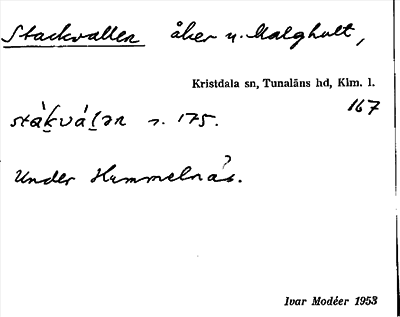 Stackvallen åker u. Malghult,
Kristdala sn, Tunaläns hd, Klm. l.
167
stàkváḷən s. 175.
Under Hummelnäs.
?
Ivar Modéer 1953